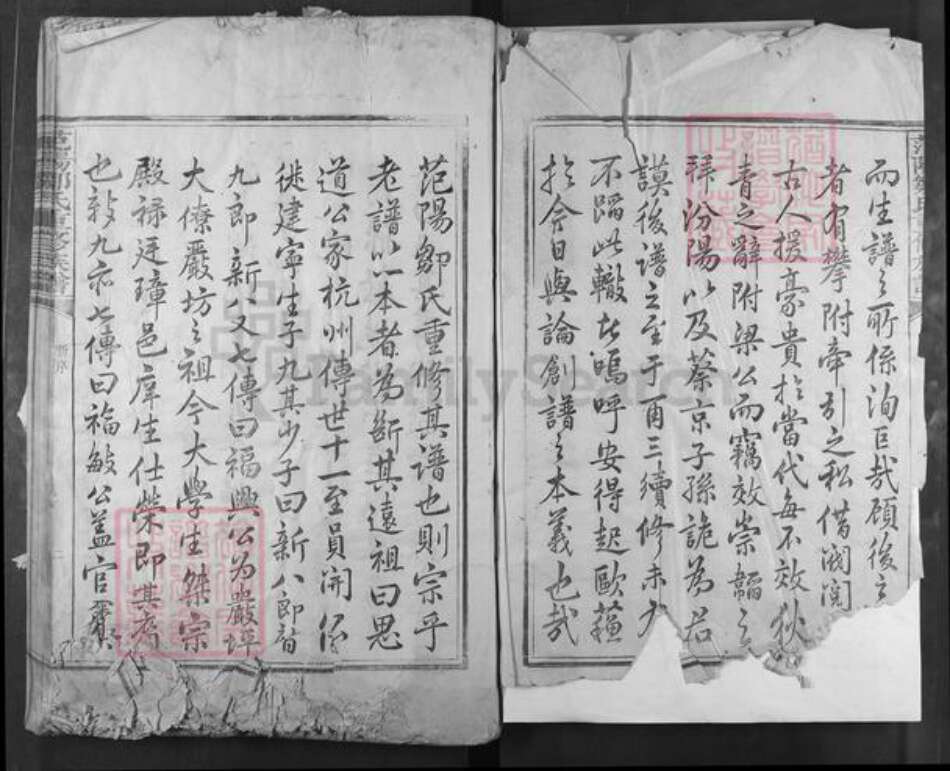 而生譜之所係洵巨哉顧後之
者有攀附牽引之私借閥閱
古人援豪貴於當代每不效狄
青之辭附梁公而竊效崇韜之
拜汾陽以及蔡京子孫詭為君
謨後譜之至于再三續修未
不蹈此轍者嗚呼安得起歐蘇
於今日與論創譜之本義也哉
范陽鄒氏重修其譜也則宗乎
老譜以一本者為斷其遠祖曰思
道公家杭州傳世十一至員開公
徙建寧生子九其少子曰新八郎
九郎新八又七傳曰福興公為嚴坪
大僚嚴坊之祖今大學生桀宗
殿祿廷璋邑庠生仕榮即其裔
也新九亦七傳曰福敏公蓋官
范陽鄒氏重修族譜
新序
FamilySearch